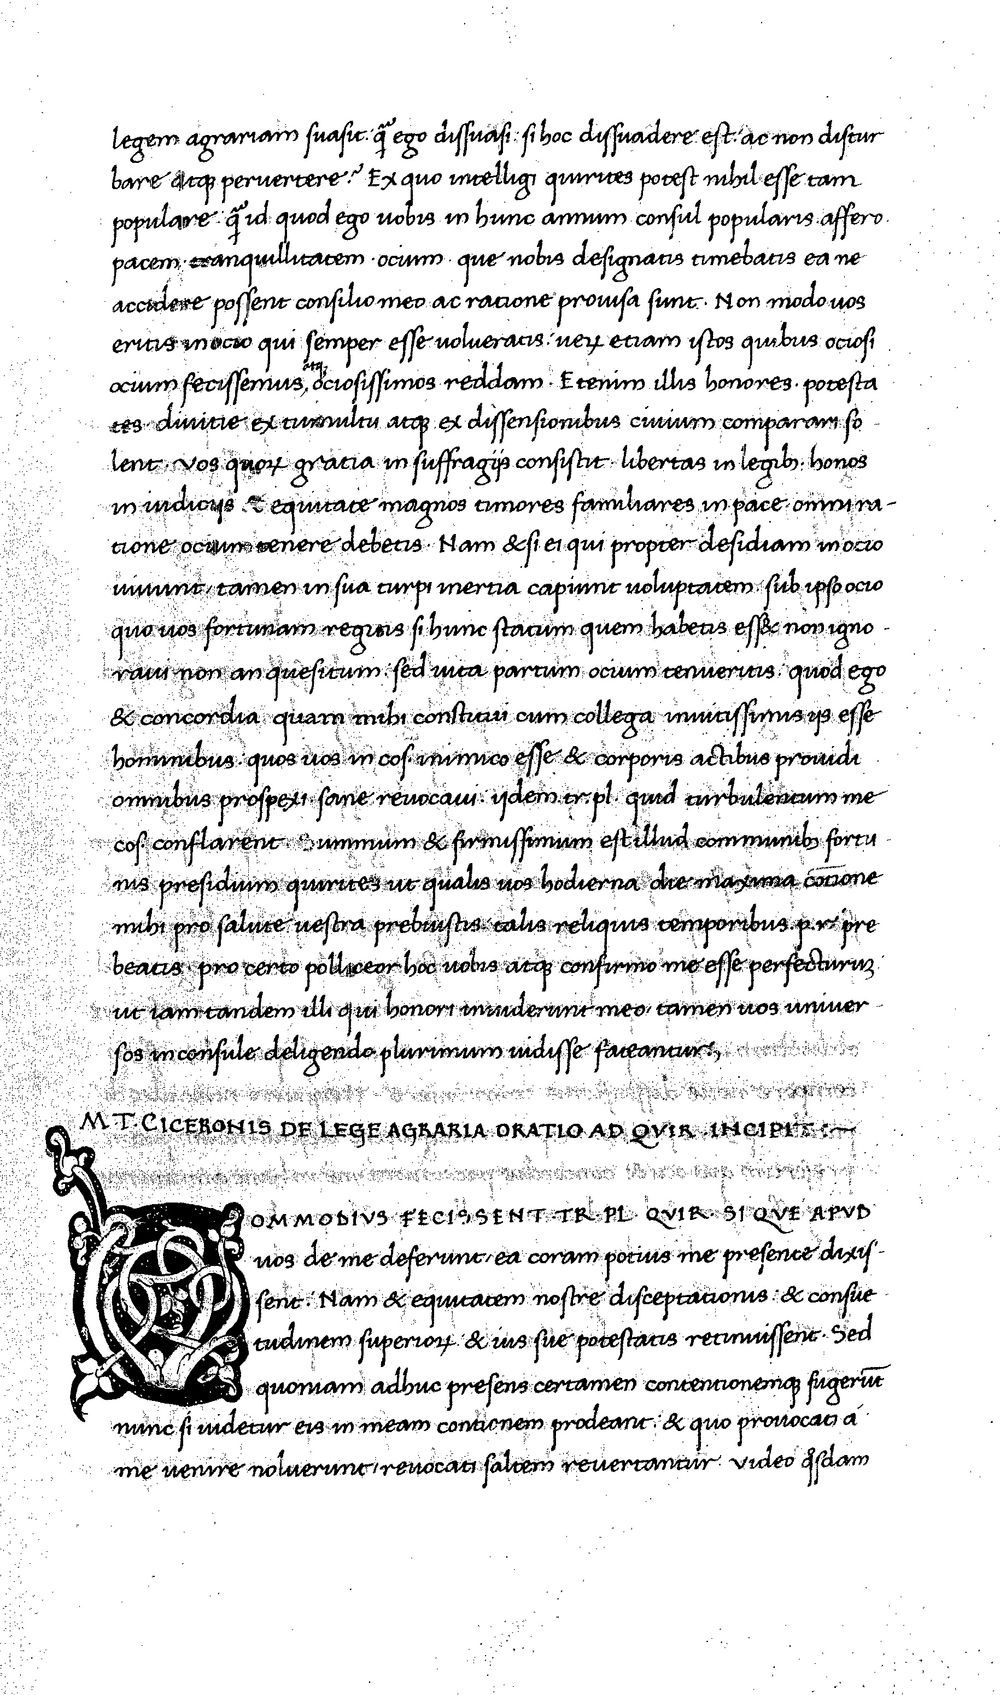 legem agrariam suasit. q̃ ego dissuasi. si hoc dissuadere est. ac non distur
bare atq; peruertere? Ex quo intelligi quirites potest nihil esse tam
populare. q̃ id quod ego uobis in hunc annum consul popularis affero.
pacem. tranquillitatem. ocium. que nobis designatis timebatis ea ne
accidere possent consilio meo ac ratione prouisa sunt. Non modo uos
eritis in ocio qui semper esse uolueratis. ueꝝ etiam istos quibus ociosi
atq;
ocium fecissemus, ociosissimos reddam. Etenim illis honores. potesta
tes diuitie ex tumultu atq; ex dissensionibus ciuium comparari so
lent. Vos quoꝝ gratia in suffragijs consistit. libertas in legib;. honos
in iudicijs & equitate magnos timores familiares in pace. omni ra-
tione ocium tenere debetis. Nam & si ei qui propter desidiam in ocio
uiuunt, tamen in sua turpi inertia capiunt uoluptatem. sub ipso ocio
quo uos fortunam si hunc statum quem habetis non igno-
raui non an quesitum. sed uita partum ocium tenueritis. quod ego
& concordia quam mihi constitui cum collega inuitissimis ijs esse
hominibus. quos uos in cos. inimico esse & corporis actibus prouidi
omnibus prospexi sane reuocaui. ijdem tr. pl. quid turbulentum me
cos. conflarent. Summum & firmissimum est illud communib; fortu
nis presidium quirites ut qualis uos hodierna die maxima cōtione
mihi pro salute uestra prebuistis. talis reliquis temporibus. p. r. pre
beatis. pro certo polliceor hoc uobis atq; confirmo me esse perfecturuꝫ
ut iam tandem illi qui honori inuiderunt meo, tamen uos uniuer-
sos in consule deligendo plurimum uidisse fateantur.
M. T. CICERONIS DE LEGE AGRARIA ORATIO AD QVIR. INCIPIT:~
COMMODIVS FECISSENT TR. PL. QVIR. SI QVE APVD
uos de me deferunt, ea coram potius me presente dixis-
sent. Nam & equitatem nostre disceptationis. & consue-
tudinem superioꝝ & ius sue potestatis retinuissent. Sed
quoniam adhuc presens certamen contentionemq; fugerūt
nunc si uidetur eis in meam contionem prodeant. & quo prouocati a
me uenire noluerunt, reuocati saltem reuertantur. Video q̊sdam